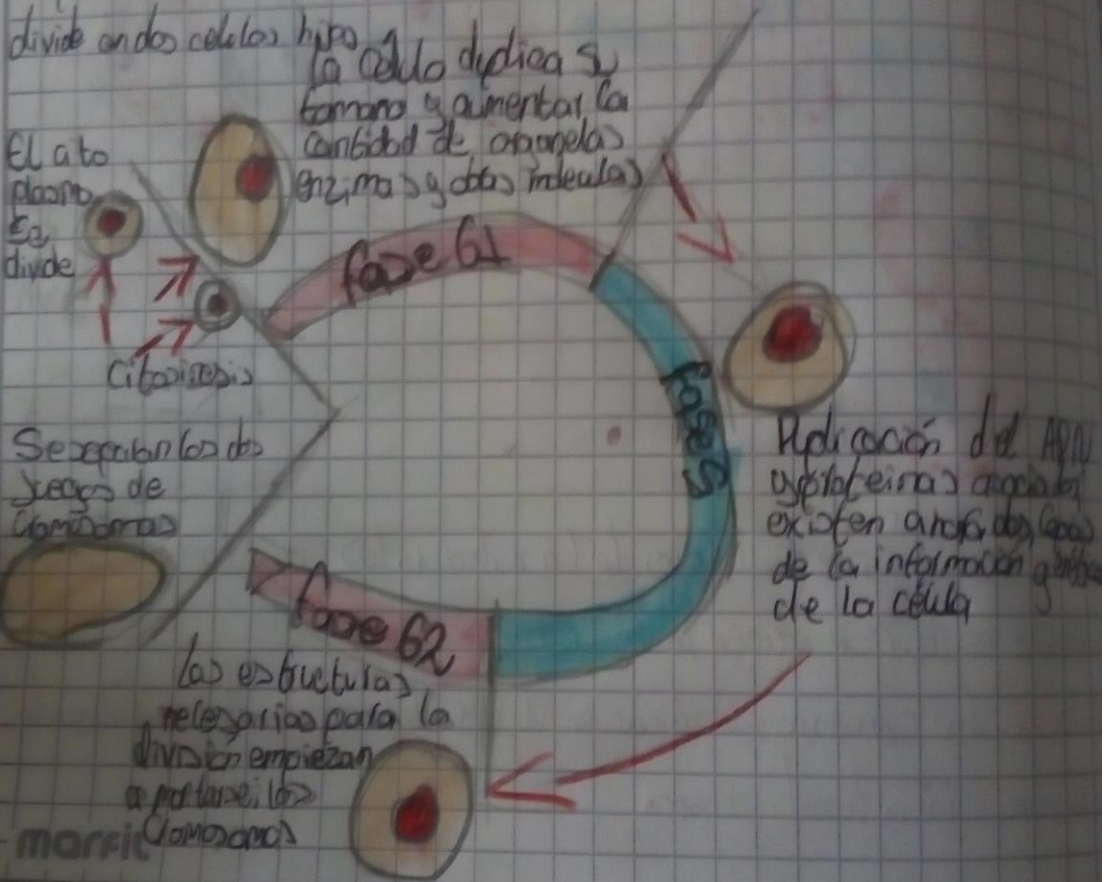 divide en dos celulas hijas
la celula duplica su
tamano y aumentar la
cantidad de organelas
enzimas y otras moleculas
El cito
plasma
se
divide
fase G1
Citosinesis
fase S
Se separan los dos
juegos de
cromosomas
Replicación del ADN
y proteinas asociadas
existen ahora dos copias
de la informacion
de la célula
fase G2
las estructuras
necesarias para la
división empiezan
los
cromosomas
marfil